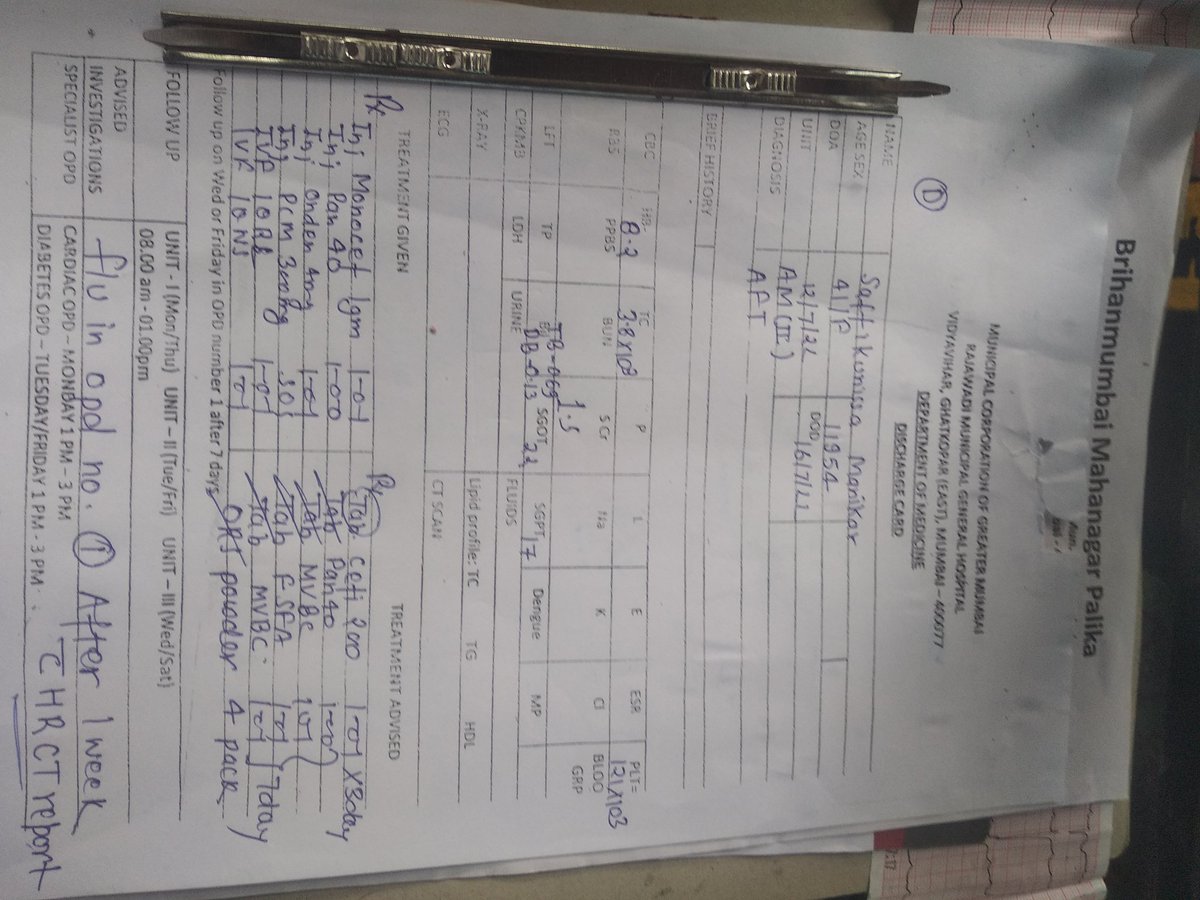 Brihanmumbai Mahanagar Palika
MUNICIPAL CORPORATION OF GREATER MUMBAI
RAJAWADI MUNICIPAL GENERAL HOSPITAL
VIDYAVIHAR, GHATKOPAR (EAST), MUMBAI – 4000077
DEPARTMENT OF MEDICINE
DISCHARGE CARD
D
NAME Manikar
AGE SEX 41/F 11954
DOA 12/7/22 DOD 16/7/22
UNIT AM (III)
DIAGNOSIS AFI
BRIEF HISTORY
CBC HB- 8.2 TC 3.8x10³ P L E ESR PLT= 121x103
RBS PPBS BUN S Cr 1.5 Na K Cl BLOO GRP
LFT TP TB-0.69 DB-0.13 SGOT 22 SGPT 17 Dengue MP
CPKMB LDH URINE FLUIDS
X-RAY Lipid profile: TC TG HDL
ECG CT SCAN
TREATMENT GIVEN TREATMENT ADVISED
Rx Inj Monocef 1gm 1-0-1 Rx Tab Cefi 200 1-0-1 x 3day
Inj Pan 40 1-0-0 Tab Pan 40 1-0-0
Inj 4mg 1-0-1 Tab MVBC 1-0-1
Inj PCM SOS Tab FSFA 1-0-1
IVF 1-0-1 Tab MVBC. 1-0-1 7day
IVF 10NS 1-0-1 ORS powder 4 pack
Follow up on Wed or Friday in OPD number 1 after 7 days
FOLLOW UP UNIT - I (Mon/Thu) UNIT – II (Tue/Fri) UNIT – III (Wed/Sat)
08.00 am - 01.00pm
ADVISED INVESTIGATIONS f/u in opd no. 1 After 1 week
c̄ HRCT report
SPECIALIST OPD CARDIAC OPD – MONDAY 1 PM - 3 PM
DIABETES OPD – TUESDAY/FRIDAY 1 PM - 3 PM